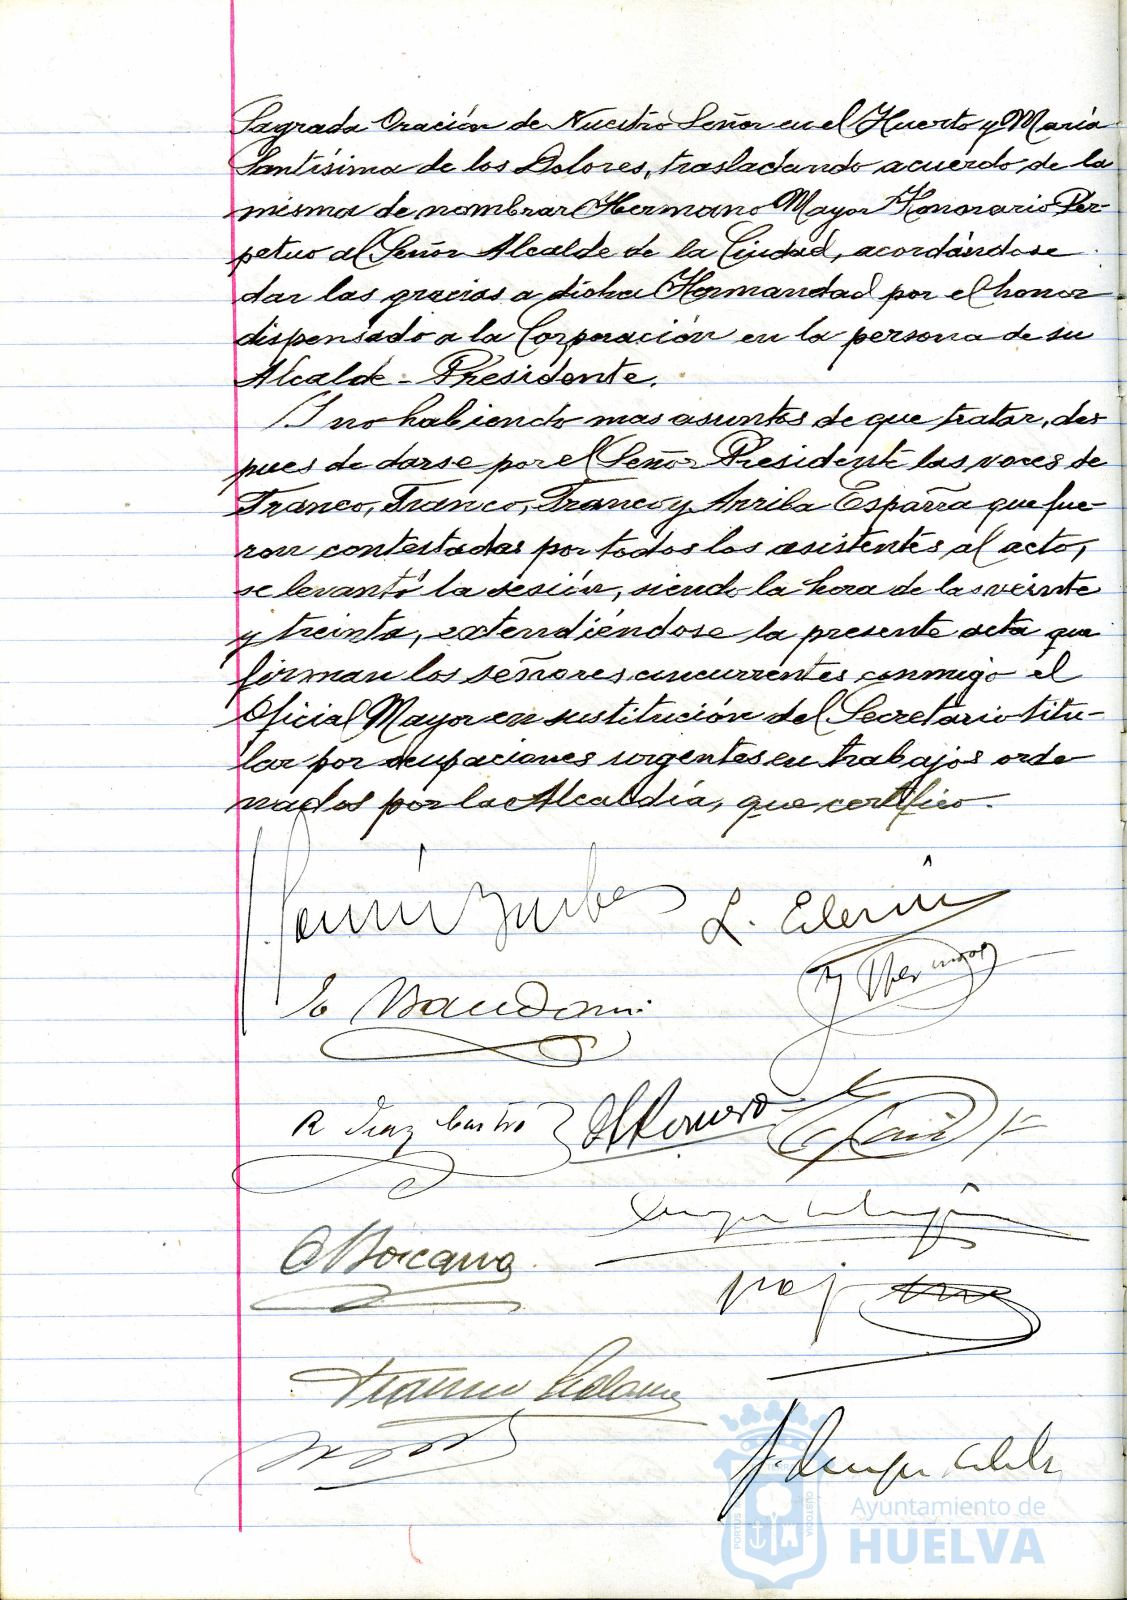 Sagrada Oración de Nuestro Señor en el Huerto y María
Santísima de los Dolores, trasladando acuerdo de la
misma de nombrar Hermano Mayor Honorario Per-
petuo al Señor Alcalde de la Ciudad, acordándose
dar las gracias a dicha Hermandad por el honor
dispensado a la Corporación en la persona de su
Alcalde-Presidente.
Y no habiendo mas asuntos de que tratar, des
pues de darse por el Señor Presidente las voces de
Franco, Franco, Franco y Arriba España que fue-
ron contestadas por todos los asistentes al acto,
se levantó la sesión, siendo la hora de las veinte
y treinta, extendiéndose la presente acta que
firman los señores concurrentes conmigo el
Oficial Mayor en sustitución del Secretario titu-
lar por ocupaciones urgentes en trabajos orde
nados por la Alcaldía, que certifico.
R Diaz Castro
Romero
PORTUS
CUSTODIA
Ayuntamiento de
HUELVA